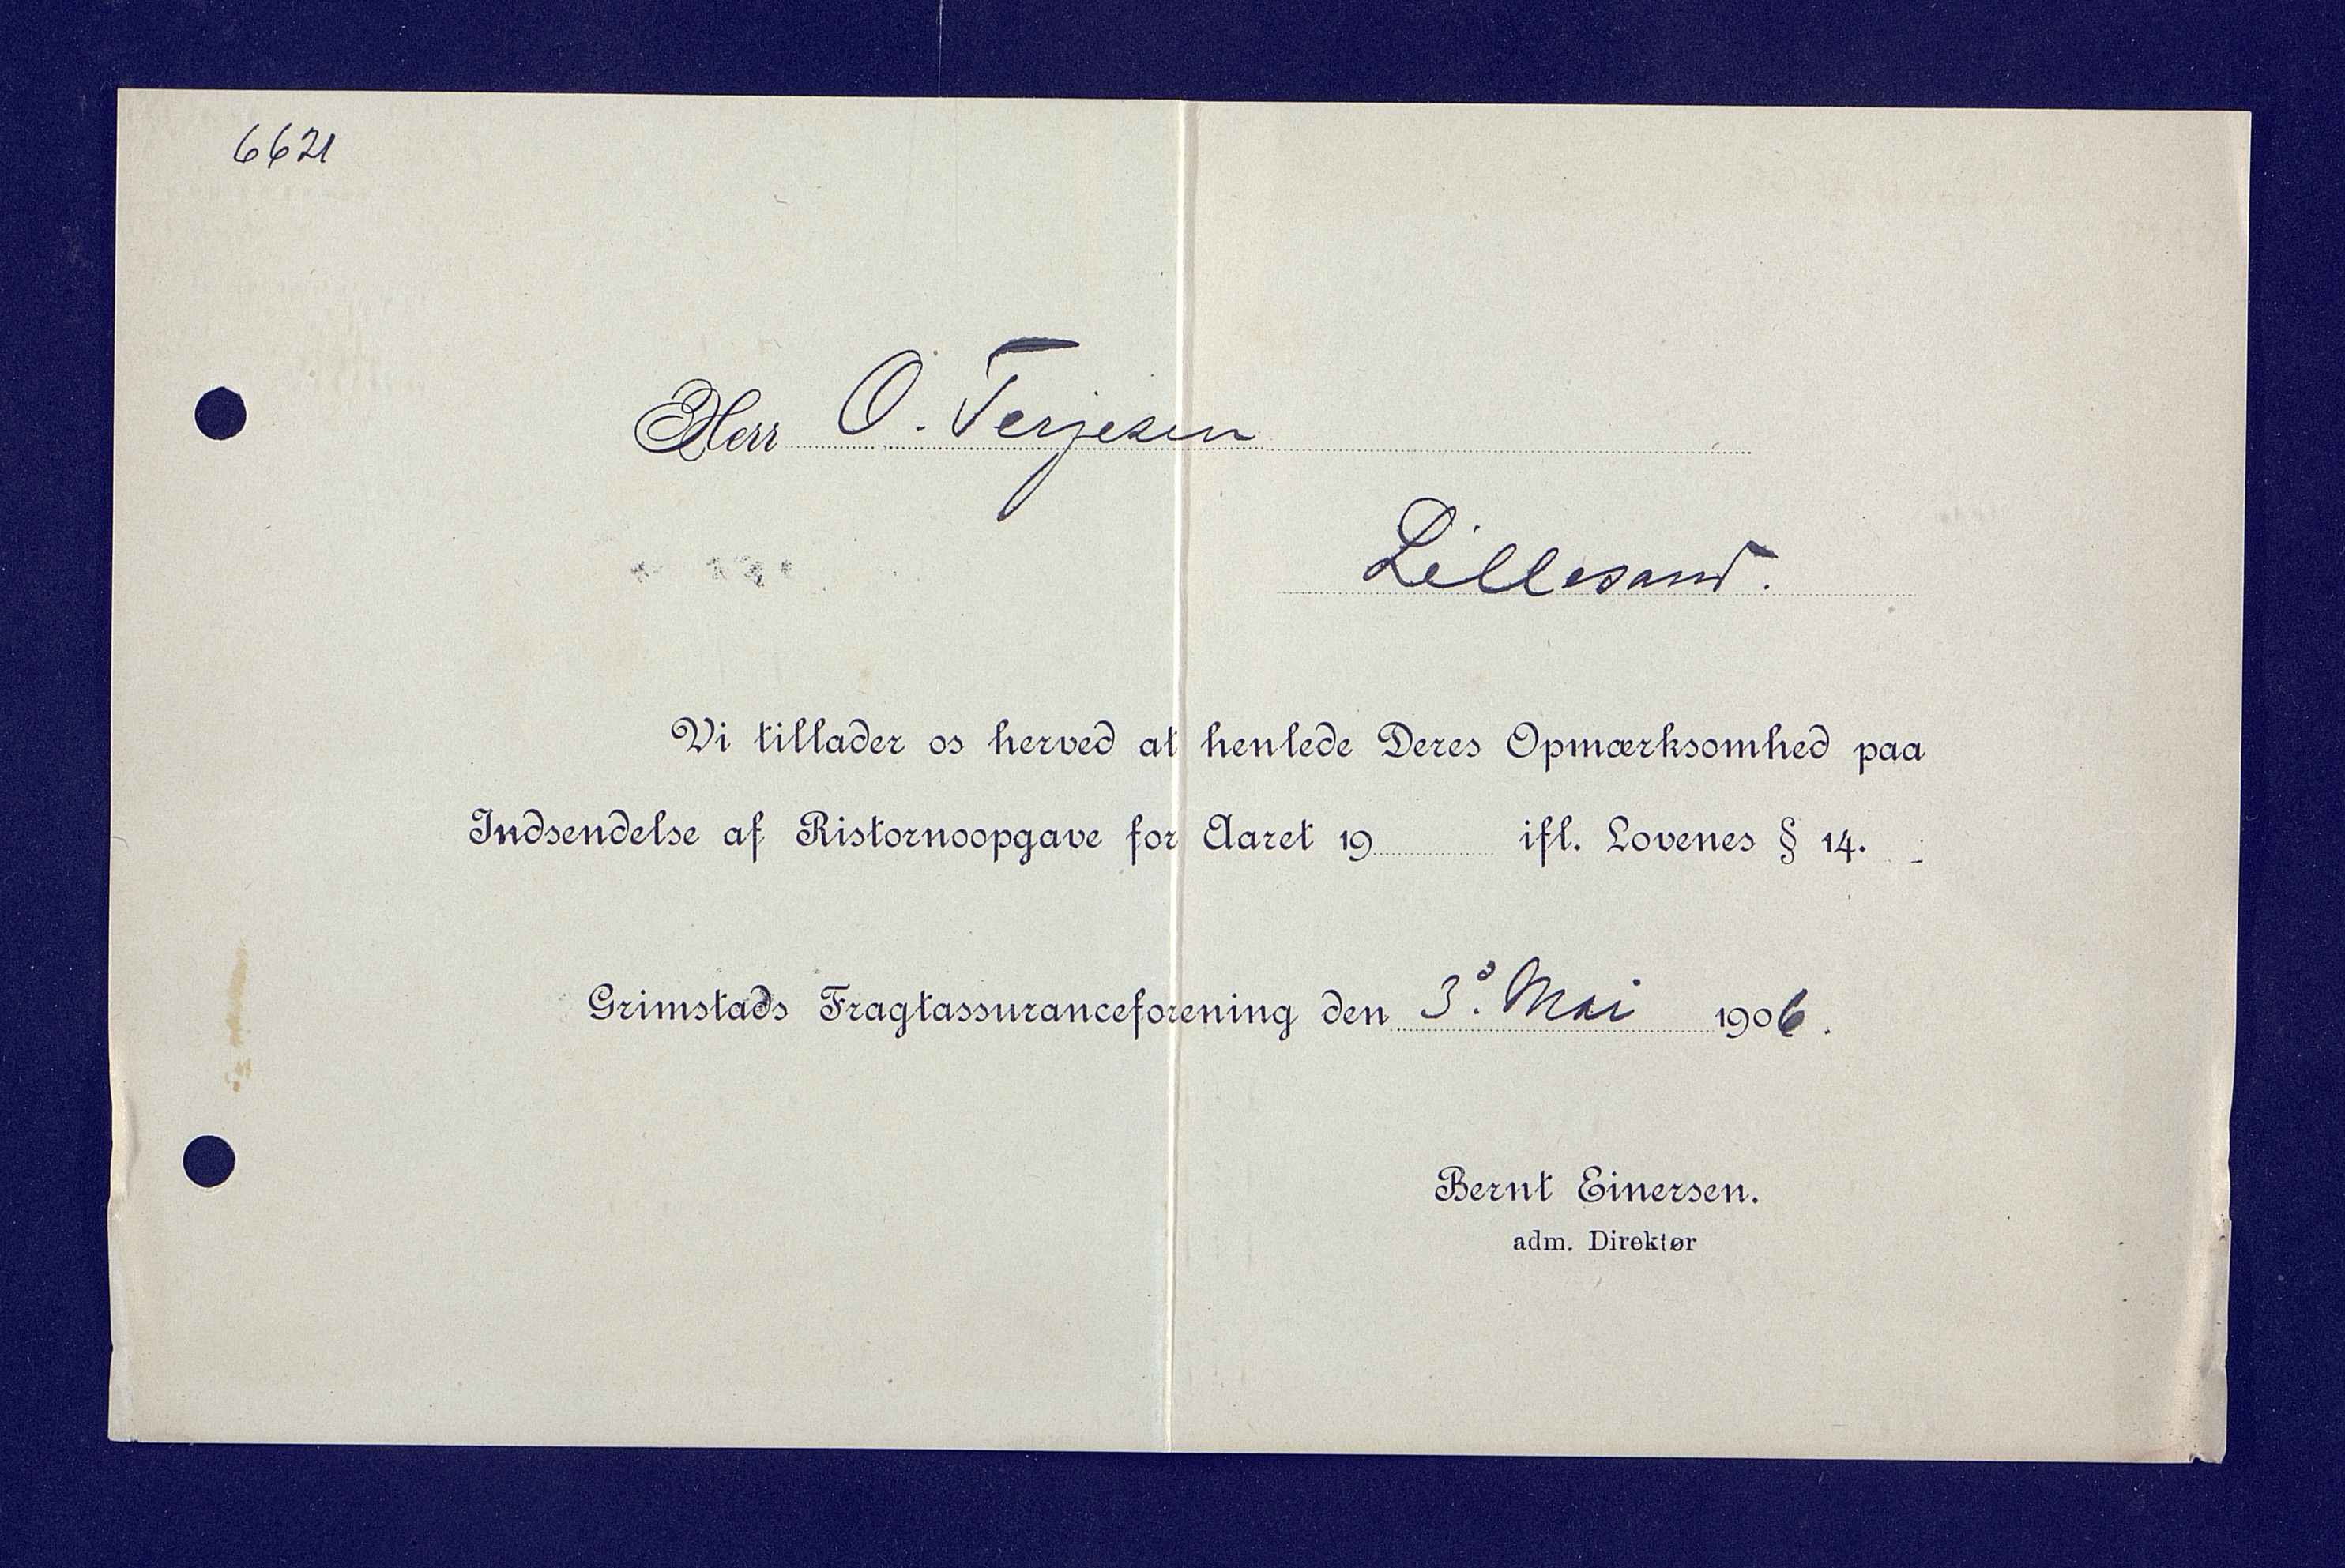 6621
Herr O. Terjesen
Lillesand.
Vi tillader os herved at henlede Deres Opmærksomhed paa
Indsendelse af Ristornoopgave for Aaret 19 ifl. Lovenes § 14.
Grimstads Fragtassuranceforening den 3º. Mai 1906.
Bernt Einersen.
adm. Direktør